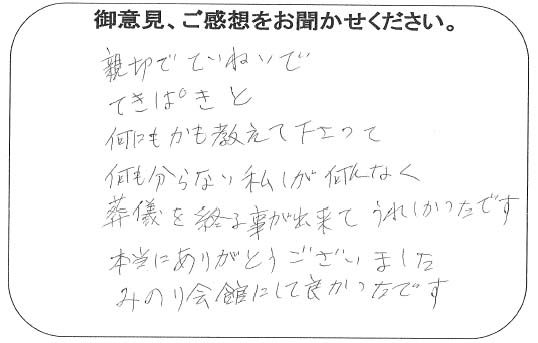 御意見、ご感想をお聞かせください。
親切でていねいで
てきぱきと
何にもかも教えて下さって
何も分らない私しが何んなく
葬儀を終る事が出来てうれしかったです
本当にありがとうございました
みのり会館にして良かったです